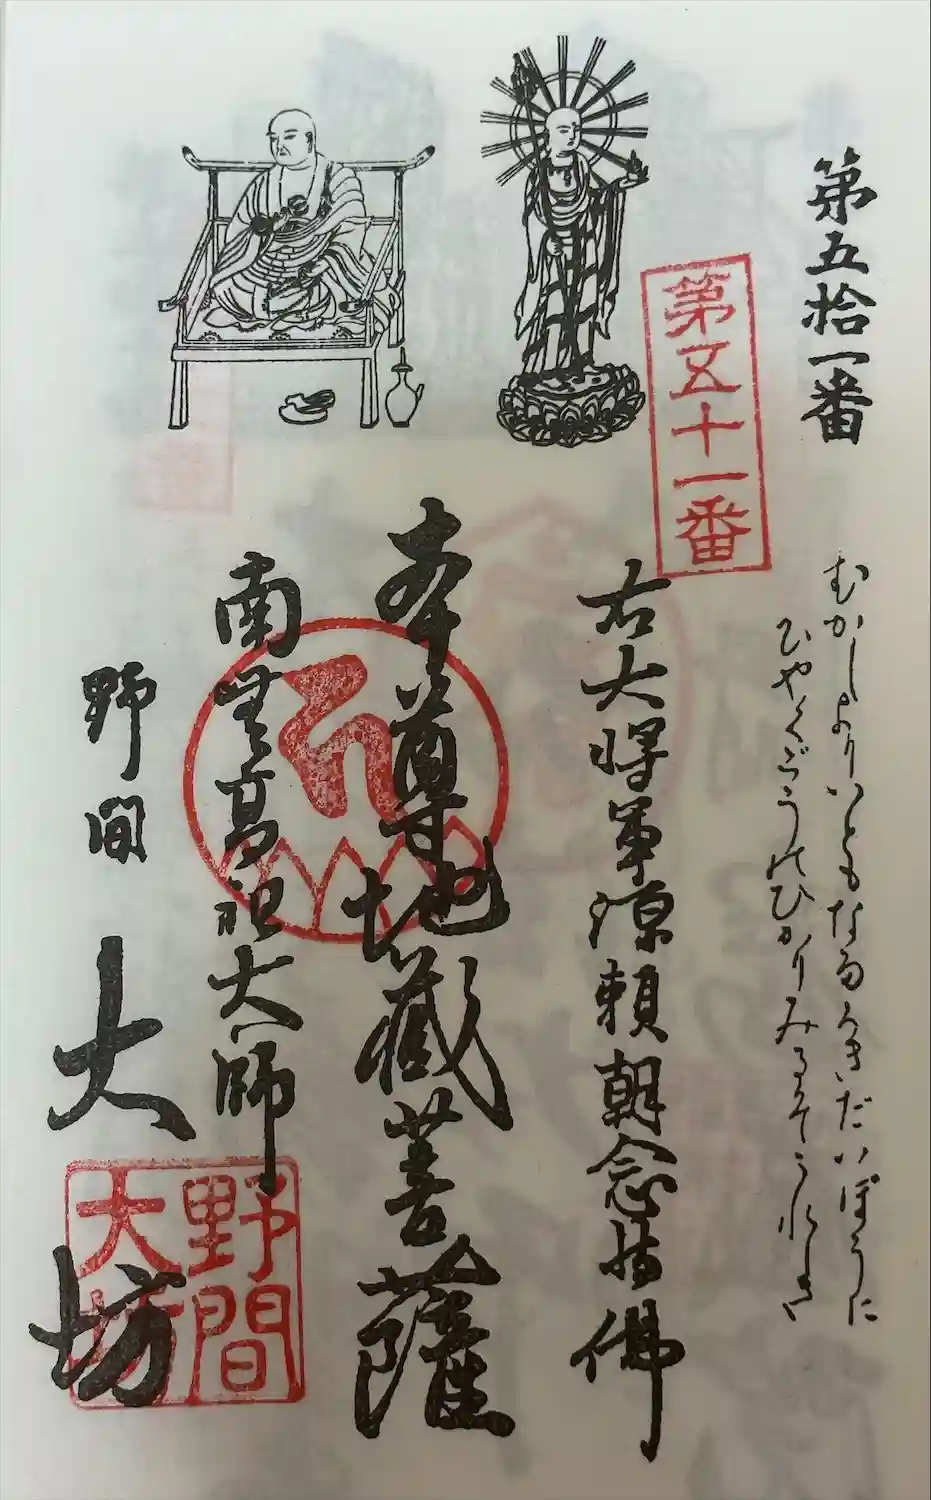 第五拾一番
むかしよりいともなたかきだいぼうに
ひやくごうのひかりみるぞうれしき
第五十一番
右大将軍源頼朝念持佛
本尊地蔵菩薩
南無高祖大師
野間大坊
野間
大坊